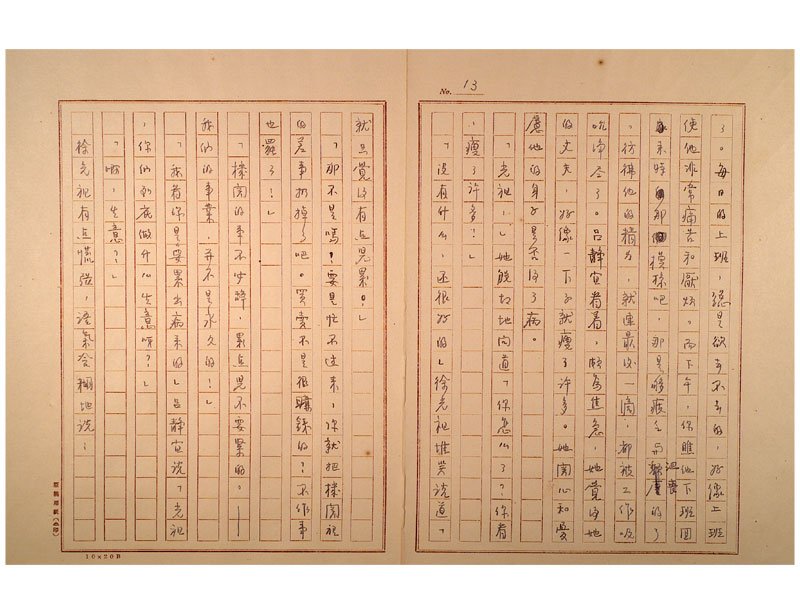 No. 13
了。每日的上班,總是欲去不去的,好像上班
使他非常痛苦和厭煩。而下午,你瞧他下班回
來時的那 模樣吧,那是夠疲乏而 沮喪的了
,彷彿他的精力,就連最後一滴,都被工作吸
吮淨盡了。呂靜宜看着,頗為焦急,她覺得她
的丈夫,好像一下子就瘦了許多。她關心和憂
慮他的身子是否得了病。
「光祖,」她親切地問道「你怎么了?你看
,瘦了許多?」
「沒有什么,还很好的」徐光祖堆笑説道「
就只覺得有点兒累。」
「那不是嗎?要是忙不过來,你就把機關裡
的差事扔掉了吧。買賣不是很賺錢的?不作事
也罷了?」
「機関的事不出錢,累点兒不要緊的。——
我们的事業,并不是永久的!」
「我看你是要累出病來的」呂靜宜説「光祖
,你们到底做什么生意呀?」
「啊,生意?」
徐光祖有点慌張,語氣含糊地説:
原稿用紙(A印)
10×20B